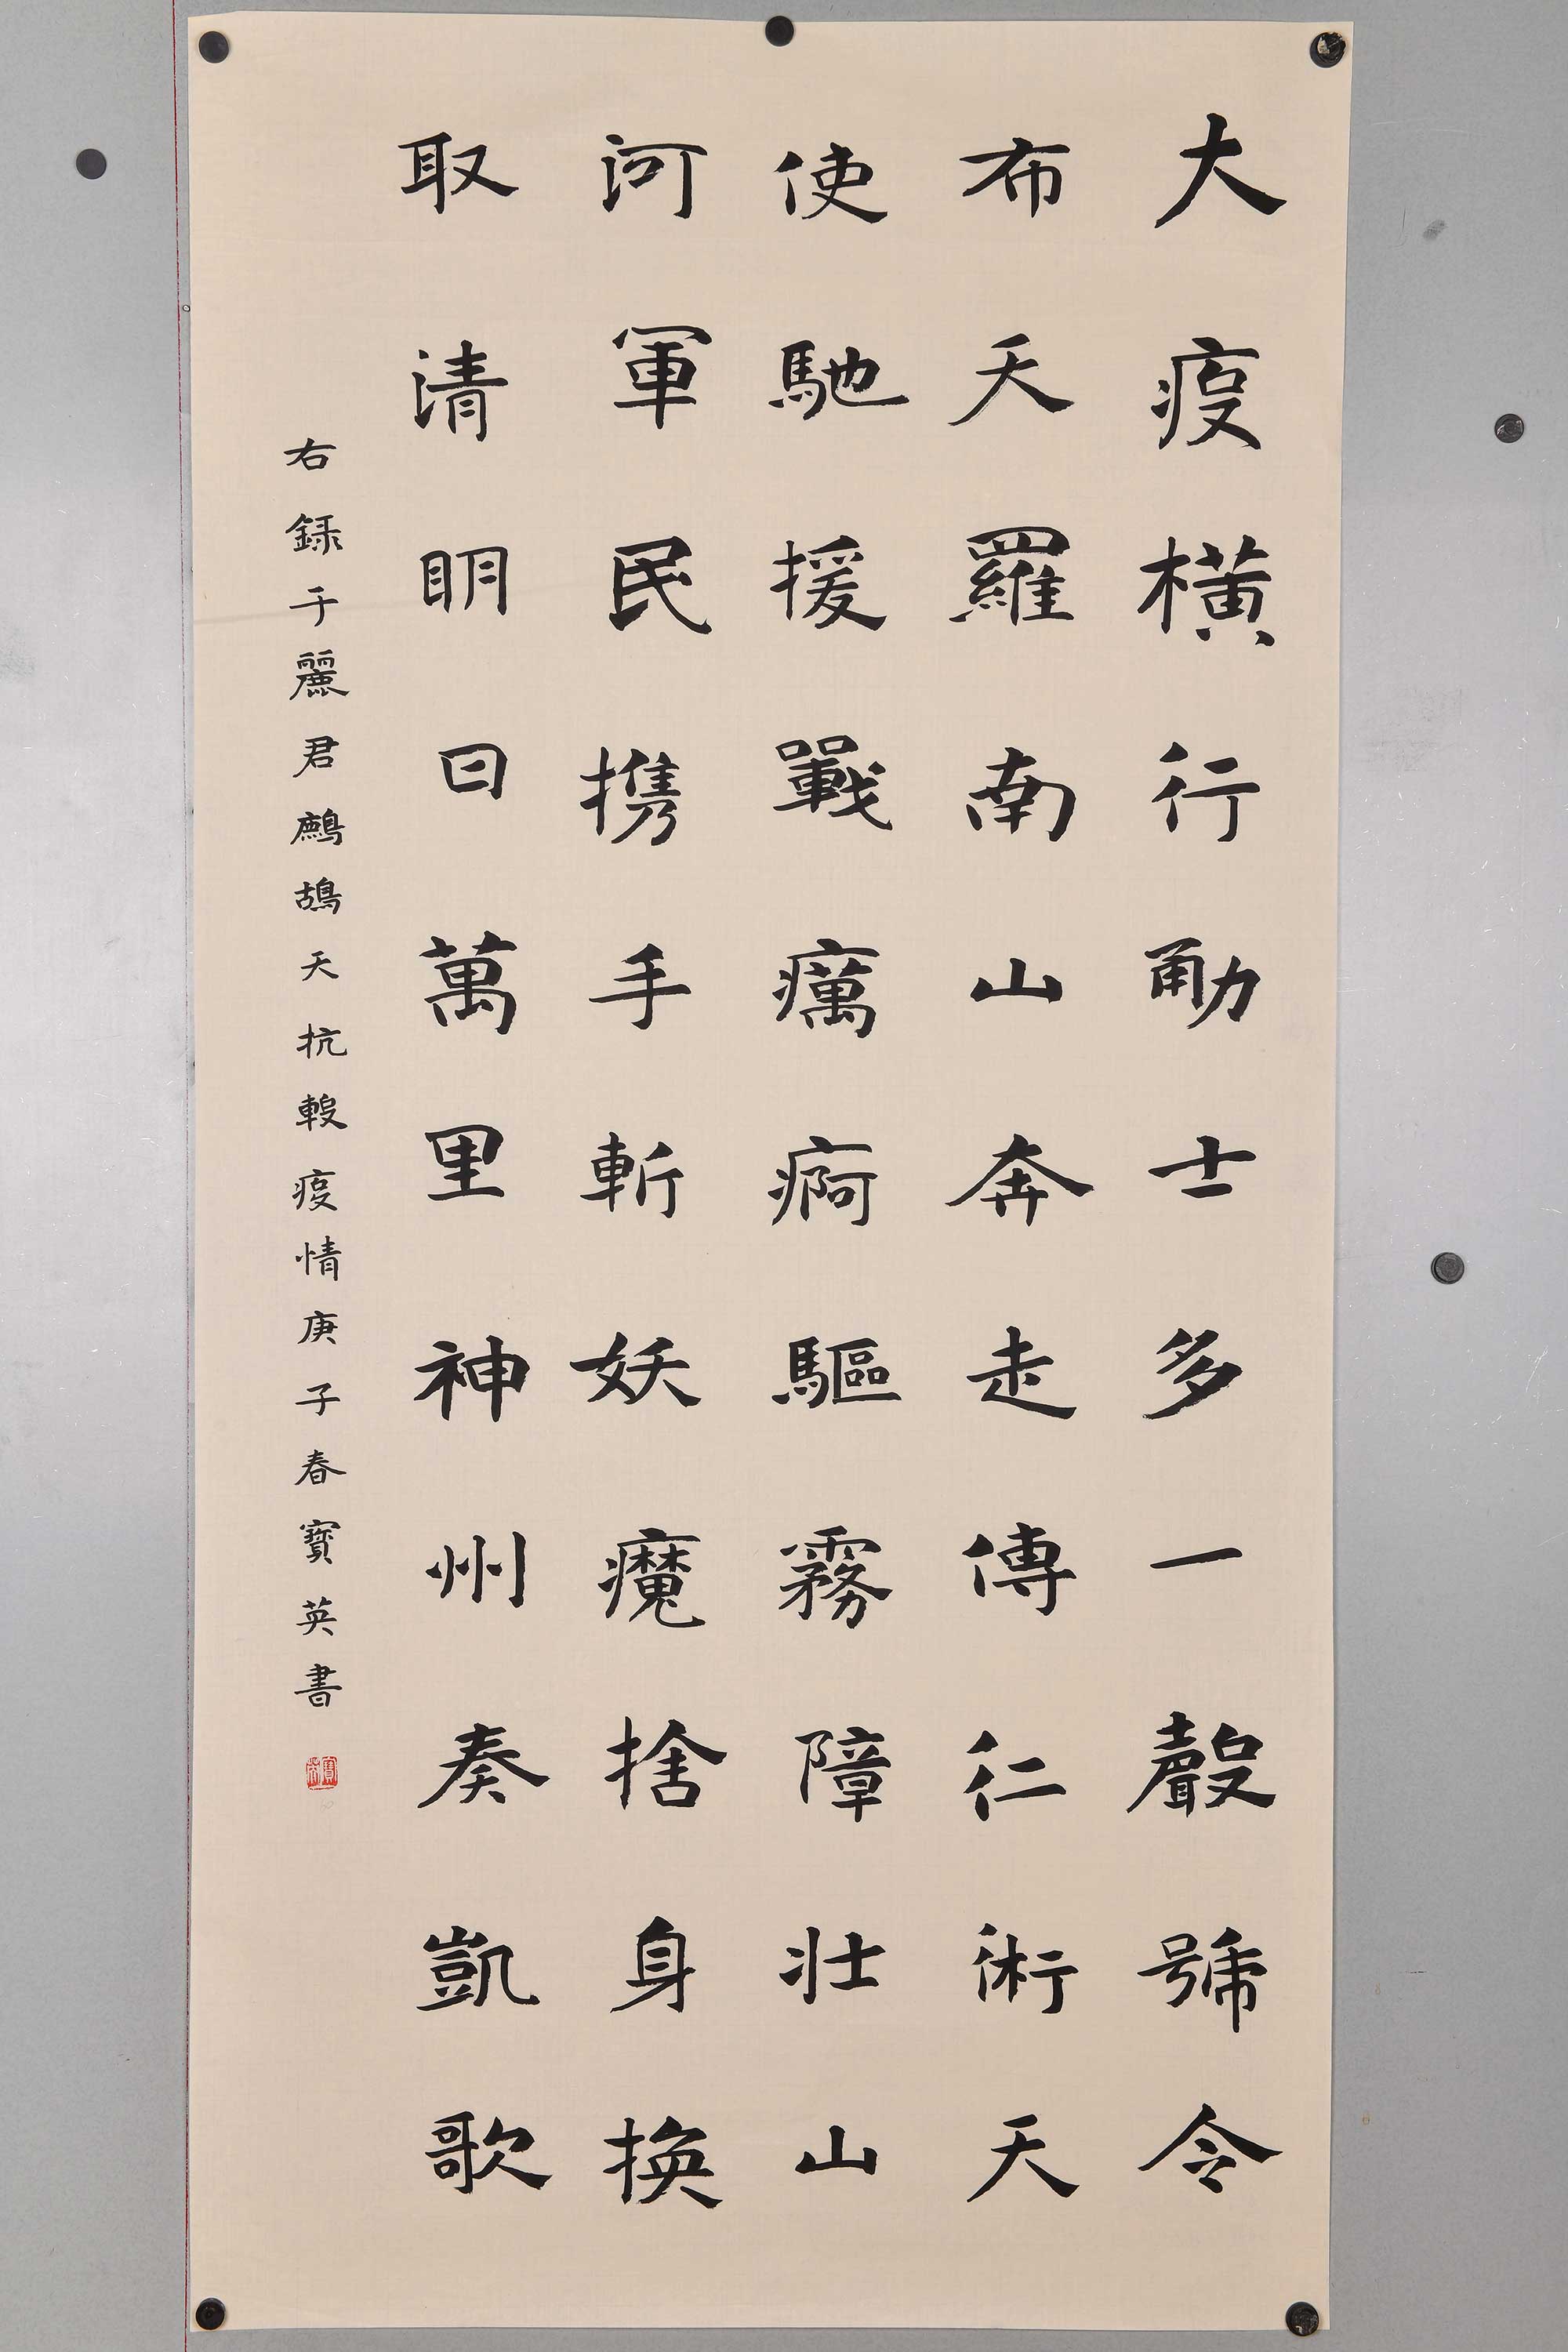 大疫横行勇士多一聲號令
布天羅南山奔走傳仁術天
使馳援戰癘痾驅霧障壯山
河軍民携手斬妖魔捨身換
取清明日萬里神州奏凱歌
右録于麗君鷓鴣天抗擊疫情庚子春寶英書
寶英